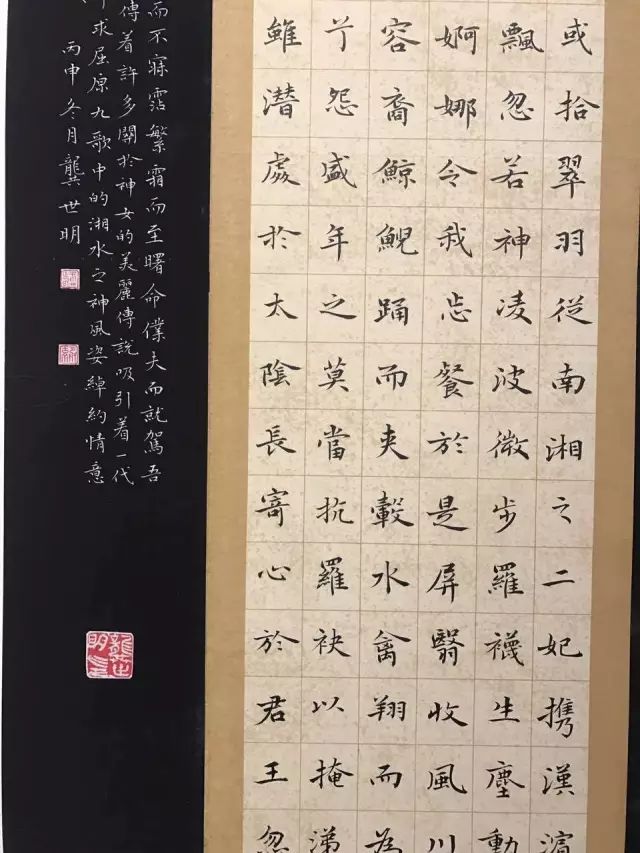 或拾翠羽從南湘之二妃携漢濱
飄忽若神凌波微步羅襪生塵動
婀娜令我忘餐於是屏翳收風川
容裔鯨鯢踊而夾轂水禽翔而為
亍怨盛年之莫當抗羅袂以掩涕
雖潛處於太陰長寄心於君王忽
而不寐霑繁霜而至曙命僕夫而就駕吾
傳着許多關於神女的美麗傳說吸引着一代
求屈原九歌中的湘水之神風姿綽約情意
丙申冬月龔世明